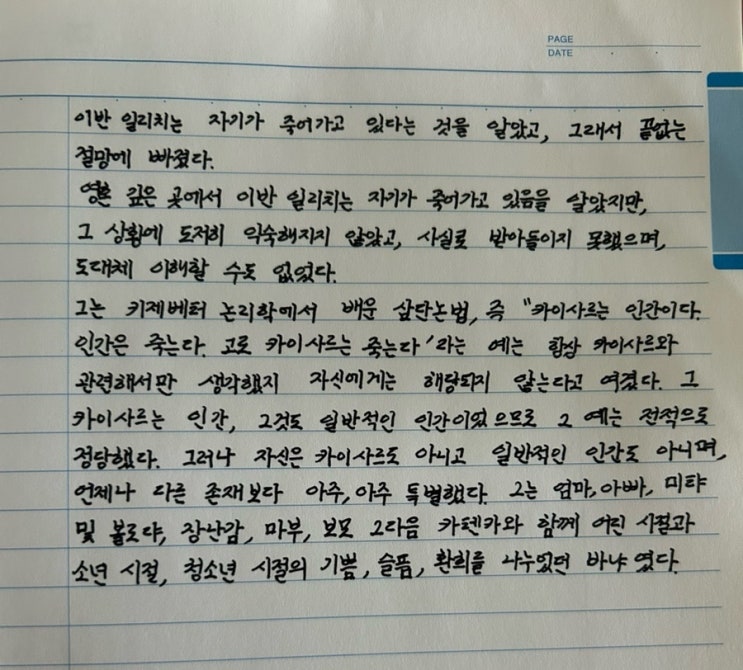 PAGE
DATE
이반 일리치는 자기가 죽어가고 있다는 것을 알았고, 그래서 끝없는
절망에 빠졌다.
영혼 깊은 곳에서 이반 일리치는 자기가 죽어가고 있음을 알았지만,
그 상황에 도저히 익숙해지지 않았고, 사실로 받아들이지 못했으며,
도대체 이해할 수도 없었다.
그는 키제베터 논리학에서 배운 삼단논법, 즉 "카이사르는 인간이다.
인간은 죽는다. 고로 카이사르는 죽는다'라는 예는 항상 카이사르와
관련해서만 생각했지 자신에게는 해당되지 않는다고 여겼다. 그
카이사르는 인간, 그것도 일반적인 인간이었으므로 그 예는 전적으로
정당했다. 그러나 자신은 카이사르도 아니고 일반적인 인간도 아니며,
언제나 다른 존재보다 아주, 아주 특별했다. 그는 엄마, 아빠, 미탸
및 볼로댜, 장난감, 마부, 보모 그다음 카텐카와 함께 어린 시절과
소년 시절, 청소년 시절의 기쁨, 슬픔, 환희를 나누었던 바냐였다.